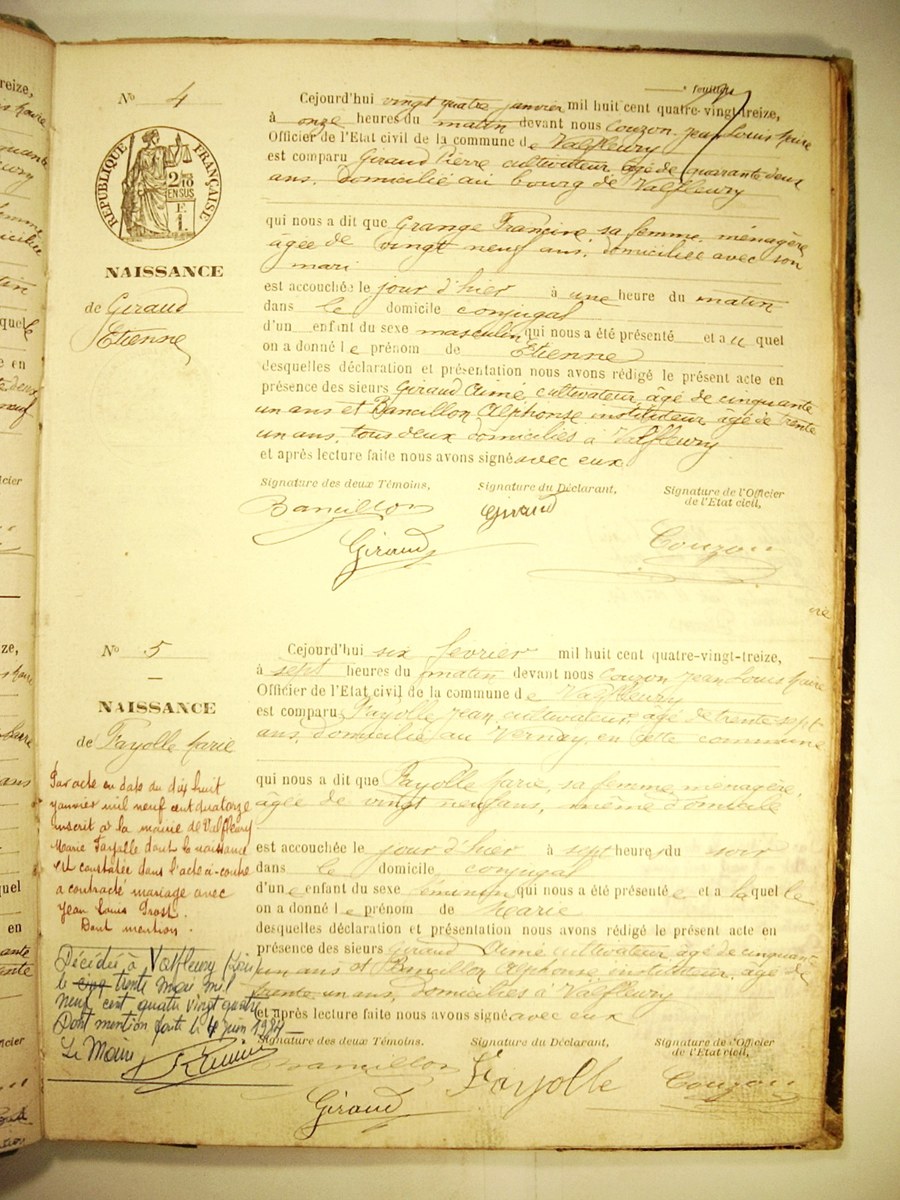 feuillet
Nº 4
RÉPUBLIQUE FRANÇAISE
2/10
EN SUS
E
1
NAISSANCE
de Giraud
Etienne
Cejourd'hui vingt quatre janvier mil huit cent quatre-vingt-treize,
à onze heures du matin devant nous Couzon Jean Louis Maire
Officier de l'Etat civil de la commune de Valfleury
est comparu Giraud Pierre cultivateur, âgé de quarante deux
ans, domicilié au bourg de Valfleury
qui nous a dit que Grange Francine, sa femme, ménagère
âgée de vingt neuf ans, domiciliée avec son
mari
est accouchée le jour d'hier à une heure du matin
dans le domicile conjugal
d'un enfant du sexe masculin qui nous a été présenté et auquel
on a donné le prénom de Etienne
desquelles déclaration et présentation nous avons rédigé le présent acte en
présence des sieurs Giraud Aimé, cultivateur, âgé de cinquante
un ans et Bancillon Alphonse instituteur, âgé de trente
un ans, tous deux domiciliés à Valfleury
et après lecture faite nous avons signé avec eux
Signature des deux Témoins, Signature du Déclarant, Signature de l'Officier
de l'Etat civil,
Bancillon Giraud
Giraud Couzon
Nº 5
NAISSANCE
de Fayolle Marie
Par acte en date du dix huit
janvier mil neuf cent quatorze
inscrit à la mairie de Valfleury
Marie Fayolle dont la naissance
est constatée dans l'acte ci-contre
a contracté mariage avec
Jean Louis Prost.
Dont mention.
Décédée à Valfleury
le cinq trente mai mil
neuf cent quatre vingt quatre
Dont mention faite le 4 juin 1984
Le Maire
Cejourd'hui six février mil huit cent quatre-vingt-treize,
à sept heures du matin devant nous Couzon Jean Louis Maire
Officier de l'Etat civil de la commune de Valfleury
est comparu Fayolle Jean, cultivateur, âgé de trente sept
ans, domicilié au Vernay, en cette commune
qui nous a dit que Fayolle Marie, sa femme, ménagère,
âgée de vingt neuf ans, même domicile
est accouchée le jour d'hier à sept heures du soir
dans le domicile conjugal
d'un enfant du sexe féminin qui nous a été présentée et a laquelle
on a donné le prénom de Marie
desquelles déclaration et présentation nous avons rédigé le présent acte en
présence des sieurs Giraud Aimé cultivateur, âgé de cinquante
un ans et Bancillon Alphonse, instituteur, âgé de
trente un ans, domiciliés à Valfleury
et après lecture faite nous avons signé avec eux
Signature des deux Témoins, Signature du Déclarant, Signature de l'Officier
de l'Etat civil,
Bancillon Fayolle Couzon
Giraud